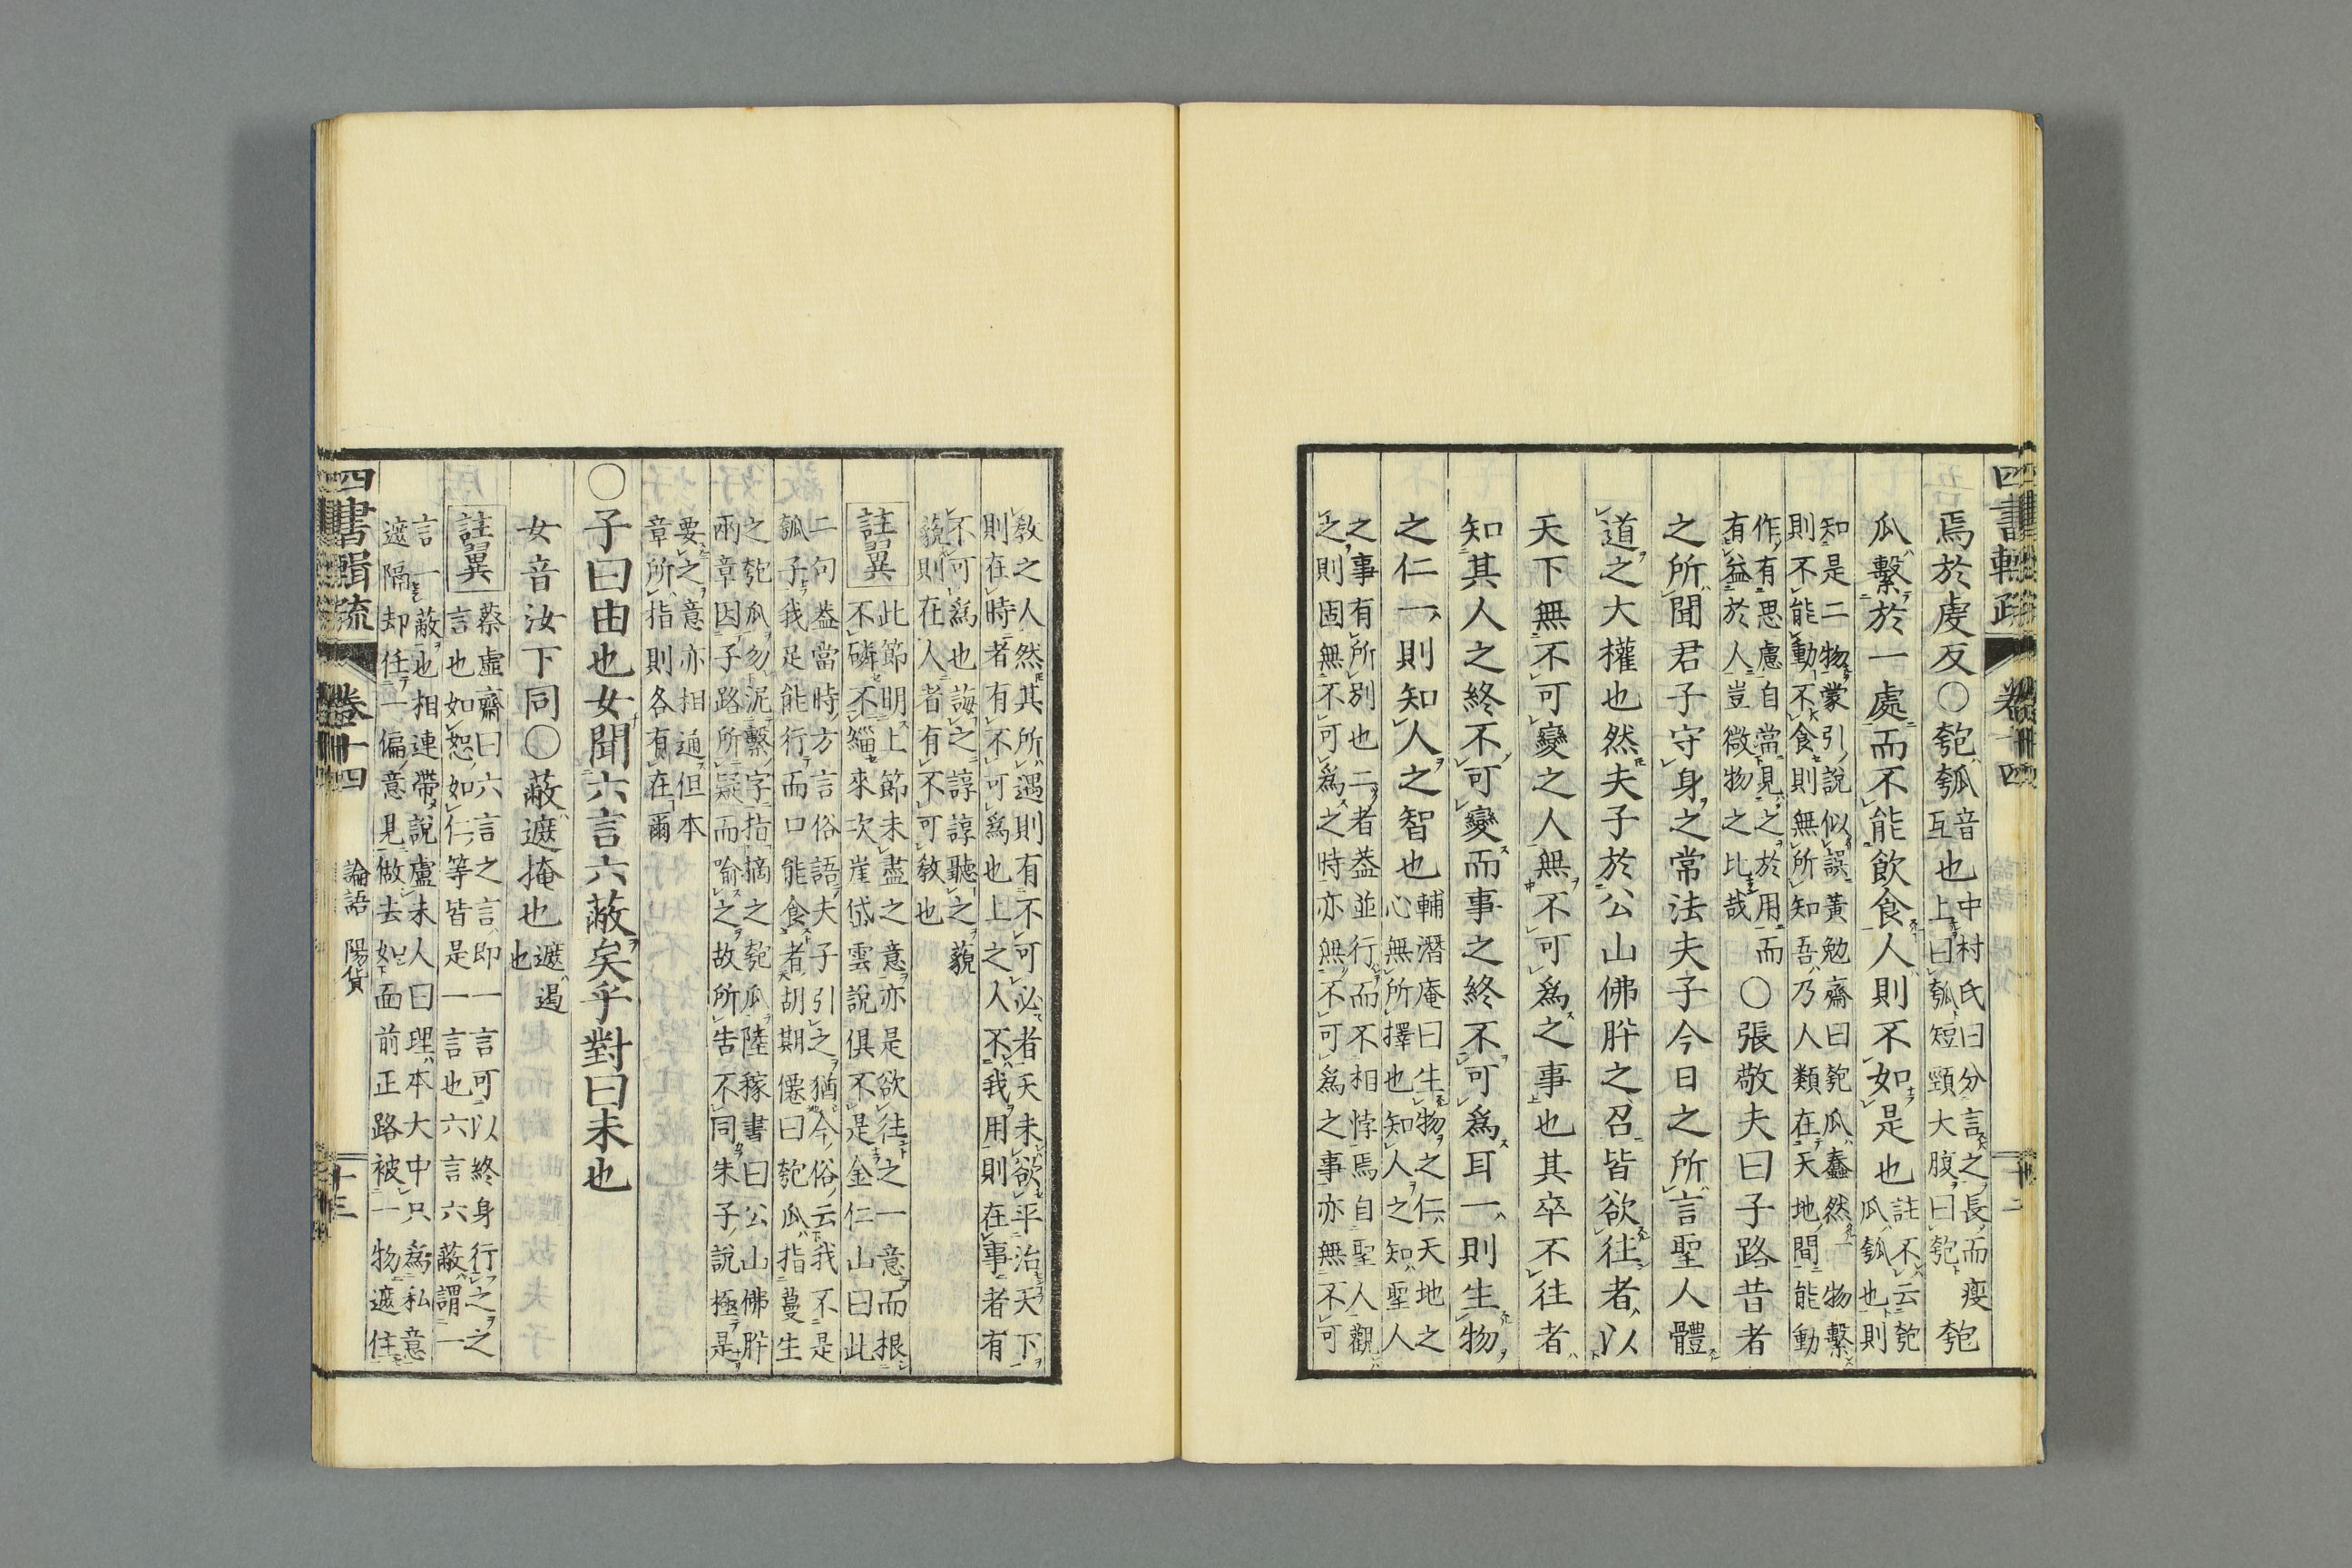 四書輯疏 卷十四
焉於虔反○匏瓠音互也中村氏曰分言之長而瘦上曰瓠短頸大腹曰匏匏
瓜繫於一處而不能飲食人則不如是也註不云匏瓜瓠也則
知是二物蒙引說似誤黃勉齋曰匏瓜蠢然一物繫
則不能動不食則無所知吾乃人類在天地間能動
作有思慮自當見之於用而
有益於人豈微物之比哉○張敬夫曰子路昔者
之所聞君子守身之常法夫子今日之所言聖人體
道之大權也然夫子於公山佛肸之召皆欲往者以
天下無不可變之人無不可爲之事也其卒不往者
知其人之終不可變而事之終不可爲耳一則生物
之仁一則知人之智也輔潛庵曰生物之仁天地之
心無所擇也知人之知聖人
之事有所別也二者葢並行而不相悖焉自聖人觀
之則固無不可爲之時亦無不可爲之事亦無不可
教之人然其所遇則有不可必者天未欲平治天下
則在時者有不可爲也上之人不我用則在事者有
不可爲也誨之諄諄聽之藐
藐則在人者有不可教也
註翼
此節明上節未盡之意亦是欲往之一意而根
不磷不緇來次崖岱雲說俱不是金仁山曰此
二句葢當時方言俗語夫子引之猶今俗云我不是
瓠子我足能行而口能食者胡期僊曰匏瓜指蔓生
之匏瓜勿泥繫字指摘之匏瓜陸稼書曰公山佛肸
兩章因子路所疑而喻之故所告不同朱子說極是
要之意亦相通但本
章所指則各有在爾
○子曰由也女聞六言六蔽矣乎對曰未也
女音汝下同○蔽遮掩也遮遏也
註翼
蔡虛齋曰六言之言即一言可以終身行之之
言也如恕如仁等皆是一言也六言六蔽謂一
言一蔽也相連帶說盧未人曰理本大中只爲私意
遮隔却任一偏意見做去如面前正路被一物遮住
四書輯疏 卷十四 論語 陽貨 十三